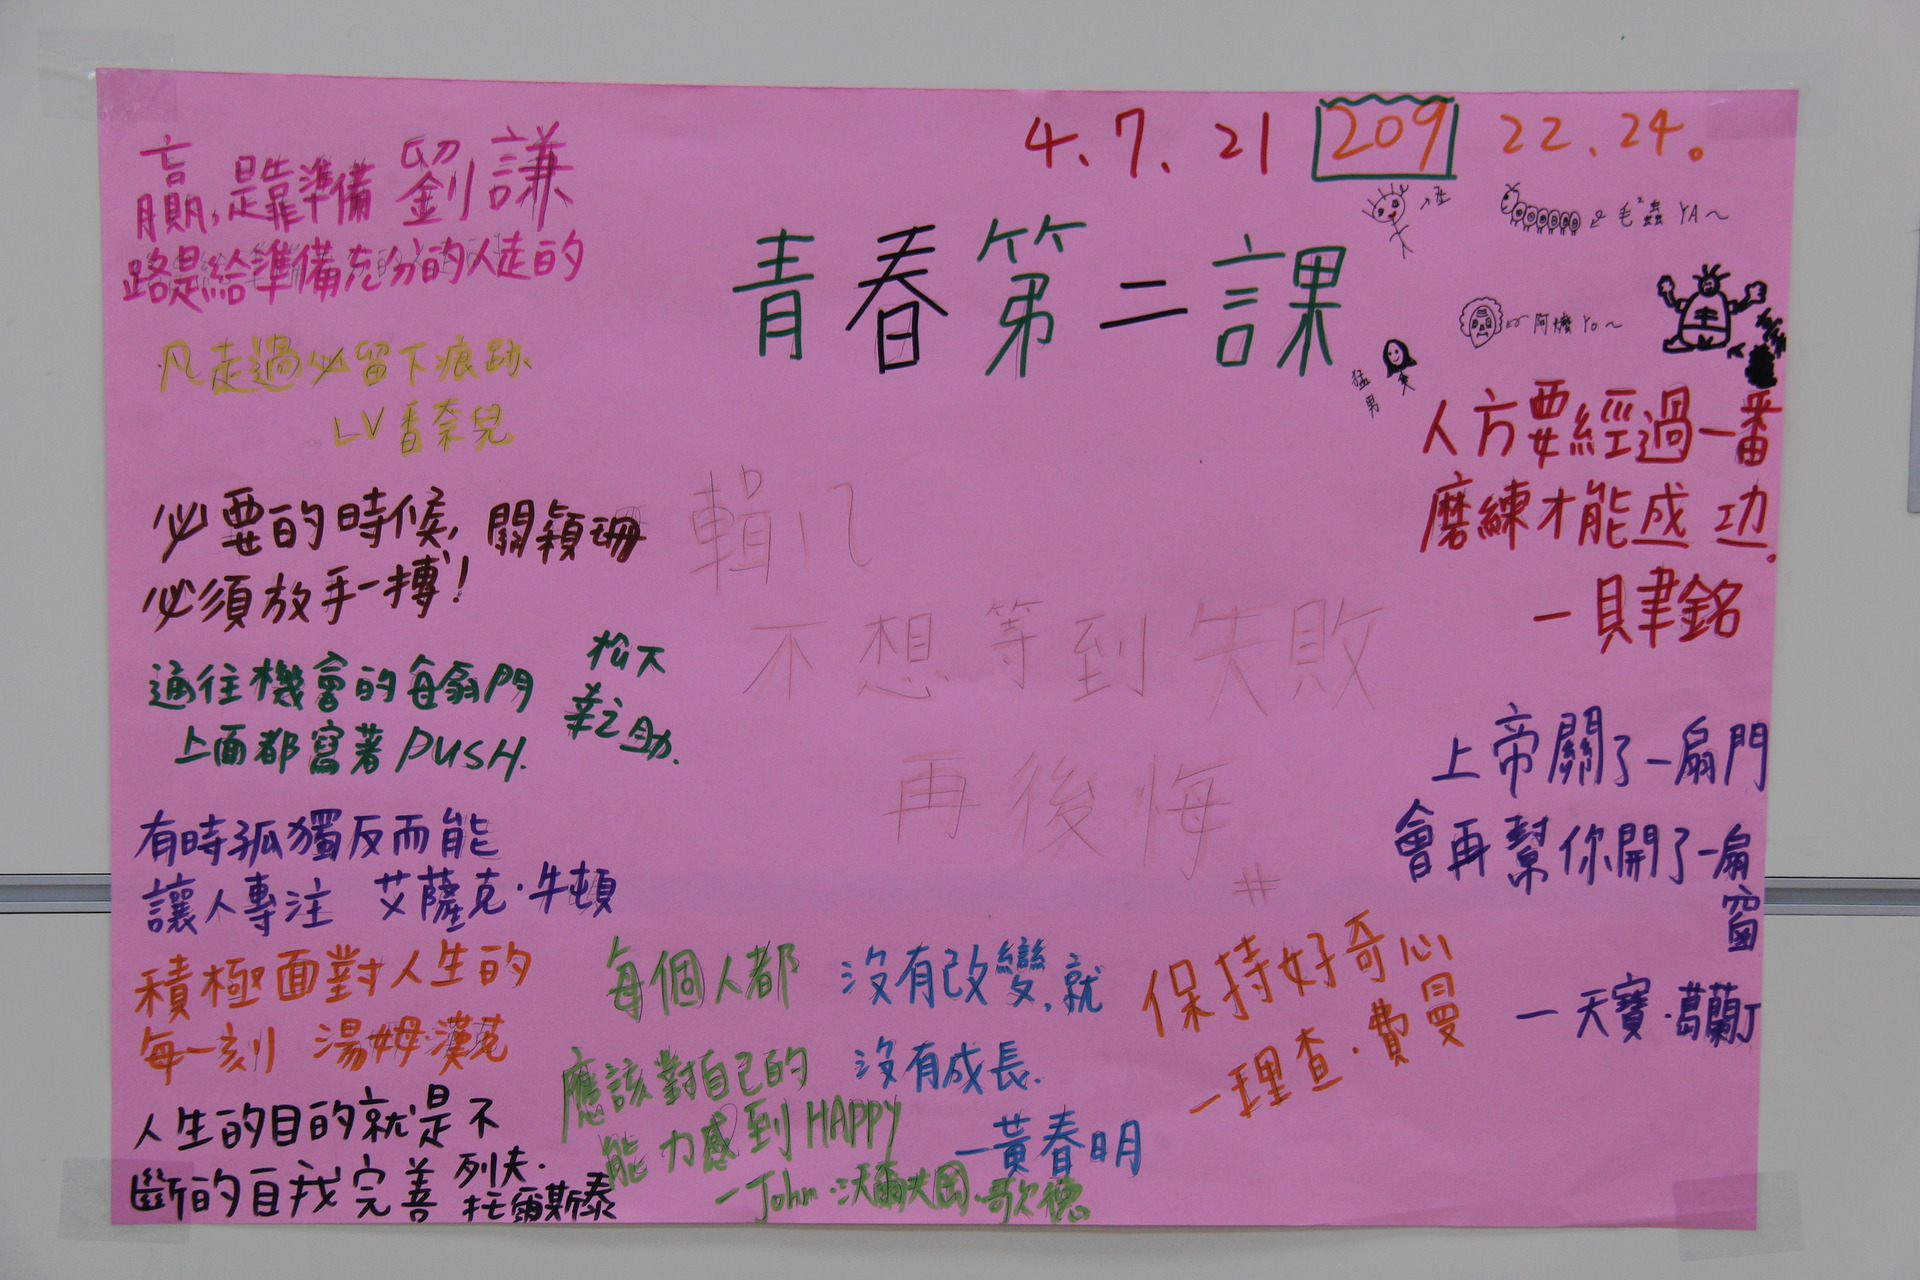 4、7、21 209 22、24。
青春第二課
毛蟲 YA~
猛男
贏,是靠準備 劉謙
路是給準備充分的人走的
凡走過必留下痕跡
LV香奈兒
必要的時候, 關穎珊
必須放手一搏!
通往機會的每扇門
上面都寫著PUSH.
松下
幸之助.
有時孤獨反而能
讓人專注 艾薩克·牛頓
積極面對人生的
每一刻 湯姆·漢克
人生的目的就是不
斷的自我完善 列夫·
托爾斯泰
不想等到失敗
再後悔
#
每個人都
應該對自己的
能力感到HAPPY
—John·沃爾夫岡·歌德
沒有改變,就
沒有成長.
—黃春明
保持好奇心
—理查·費曼
人方要經過一番
磨練才能成功。
—貝聿銘
上帝關了一扇門
會再幫你開了一扇
窗
—天寶·葛蘭丁